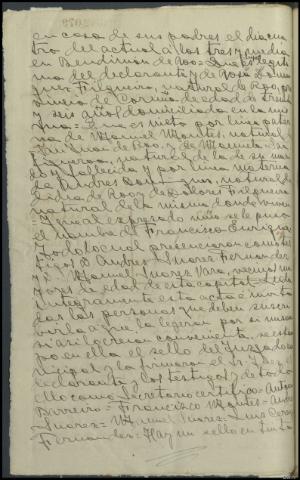 en casa de sus padres el dia cua
tro del actual á las tres y media
en Bendimon de Roo= Que es hijo legiti
mo del declarante y de Rosa Domin
guez Filgueiro, natural de
vincia de Coruña, de edad de treinta
y seis años domiciliada en la mis
ma= Que es nieto por linea pater
na de Manuel Montes, natural
de San Juan de Roo, y de Manuela
Figueroa, natural de la de su mari
do y fallecida y por linea materna
de Andres Dominguez, natural de
de Roo y de Dolores Filgueiro
natural de la misma donde viven
Y que al expresado niño se le puso
el nombre de Francisco Enrique
Todo lo cual presenciaron como tes
tigos D. Andres Suarez Fernandez
y D. Manuel Suarez Vara, vecinos ma
yores de edad de esta capital= Leida
integramente esta acta é invita
das las personas que deben suscri
birla á que la leyeran por si mismas
si asi lo creian conveniente, se estam
pó en ella el sello del Juzgado mu
nicipal y la firmaron el Sr. Juez
declarante y los testigos y de todo
ello como Secretario certifico= Antonio
Barreiro= Francisco Montes= Andres
Suarez= Manuel Suarez= Luis
Fernandez= Hay un sello en tinta